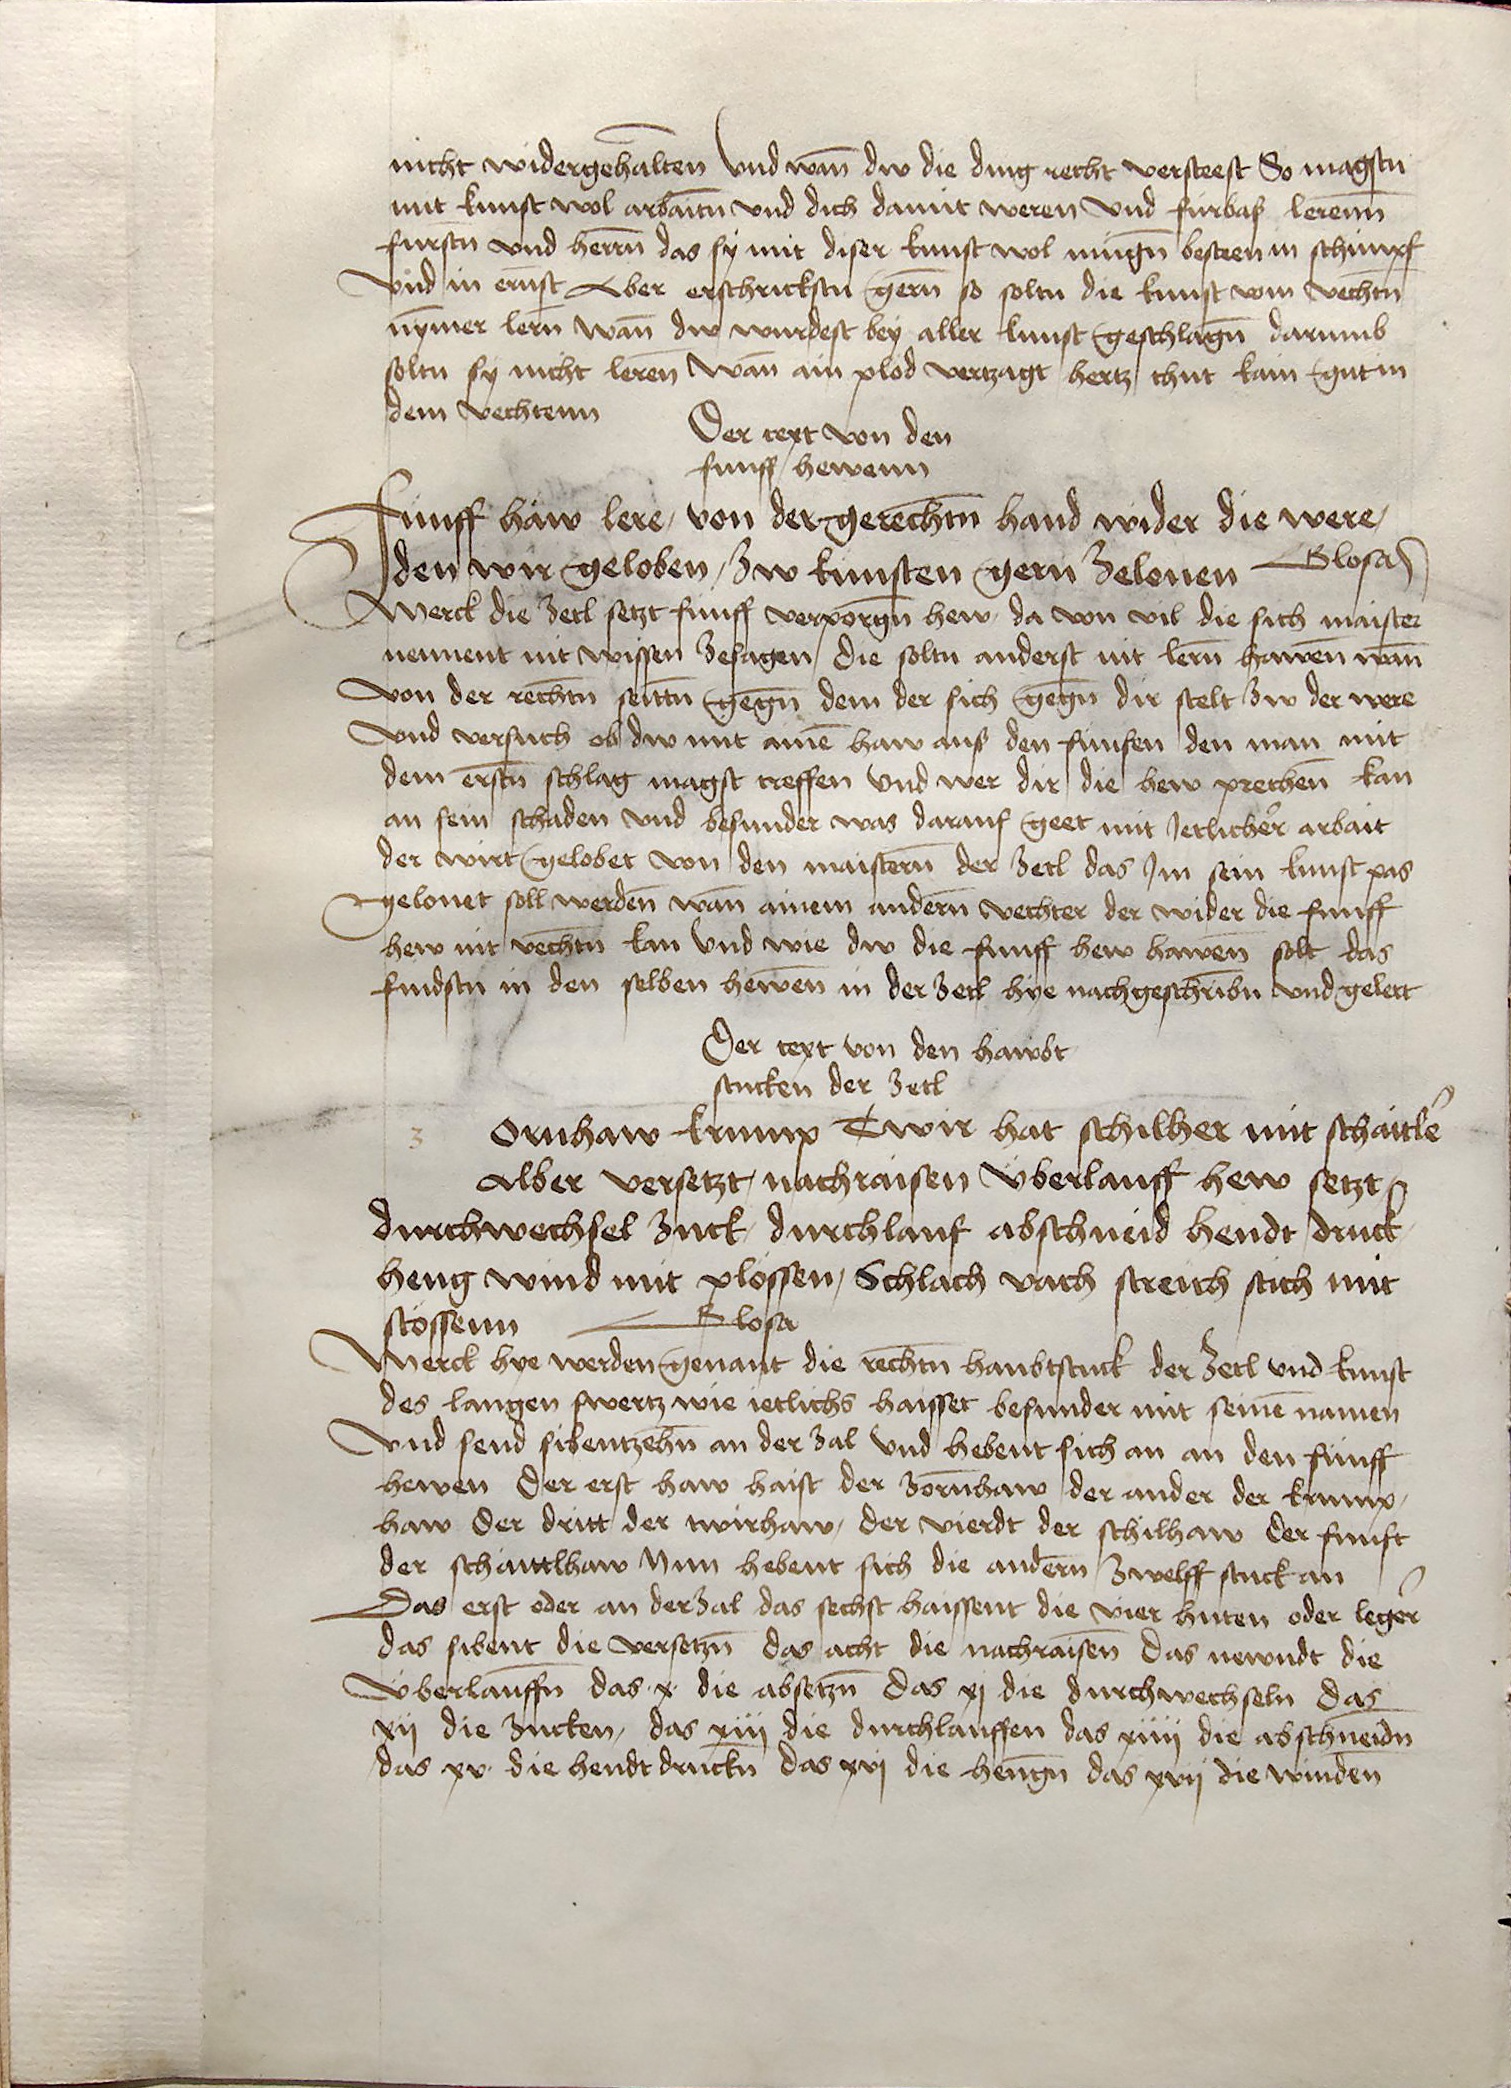 nicht widergehalten Vnd wañ dw die ding recht versteest So magstu
mit kunst wol arbaitñ vnd dich damit weren Vnd furbaß lerenn
furstñ vnd herrñ das sy mit diser kunst wol mugñ besteen in schimpf
vnd in ernst Aber erschrickstu gerñ so soltu die kunst von vechtñ
nÿmer lerñ wañ dw wurdest beÿ aller kunst geschlagñ darumb
soltu sy nicht lereñ Wañ ain plöd vertzagt hertz thut kain gut in
dem vechtenn
Der text von den
funff hewenn
Fünff häw lere / von der gerechtñ hand wider die were /
den wir geloben / Zw kunsten gern Zelonen Glosa
Merck die Zetl setzt fünff verporgñ hew da von vil die sich maister
nennent nit wissen Zesagen / Die soltu anderst nit lerñ haweñ wañ
von der rechtñ seittñ gegñ dem der sich gegñ dir stelt Zw der were
Vnd versuch ob dw mit ainē haw auß den fünfen den man mit
dem erstñ schlag magst treffen Vnd wer dir die hew precheñ kan
an sein schaden vnd besunder was darauf geet mit Jetlicher arbait
der wirt gelobet von den maistern der Zetl das Jm sein kunst pas
gelonet soll werdeñ wañ ainem andern vechter der wider die funff
hew nit vechtñ kan Vnd wie dw die funff hew haweñ solt das
findstu in den selben hewen in der Zetl hÿe nachgeschribñ vnd gelert
Der text von den hawbt
stucken der Zetl
z Ornhaw krump Twir hat schilher mit schaitlē
Alber versetzt / nachraisen Vberlauff hew setzt /
durchwechsel Zuck / durchlauf abschneid hendt druck
heng wind mit plössen / Schlach vach streich stich mit
stössenn Glosa
Merck hye werden genant die rechtñ haubtstuck der Zetl vnd kunst
des langen swertz wie ietlichs haisset besunder mit seinē namen
Vnd send sibentzehñ an der Zal Vnd hebent sich an an den fünff
hewen Der erst haw haist der Zornhaw der ander der krump /
haw Der dritt der twirhaw / Der vierdt der schilhaw Der funft
der schaittlhaw Nun hebent sich die andern Zwelff stuck an
Das erst oder an der Zal das sechst haissent die vier huten oder leger
das sibent die versetzñ das acht die nachraiseñ Das newndt die
Vberlauffñ das x die absetzñ Das xj die durchwechseln Das
xij die Zucken / das xiij die durchlauffen das xiiij die abschneidñ
das xv die hendt druckñ Das xvj die hengñ das xvij die winden